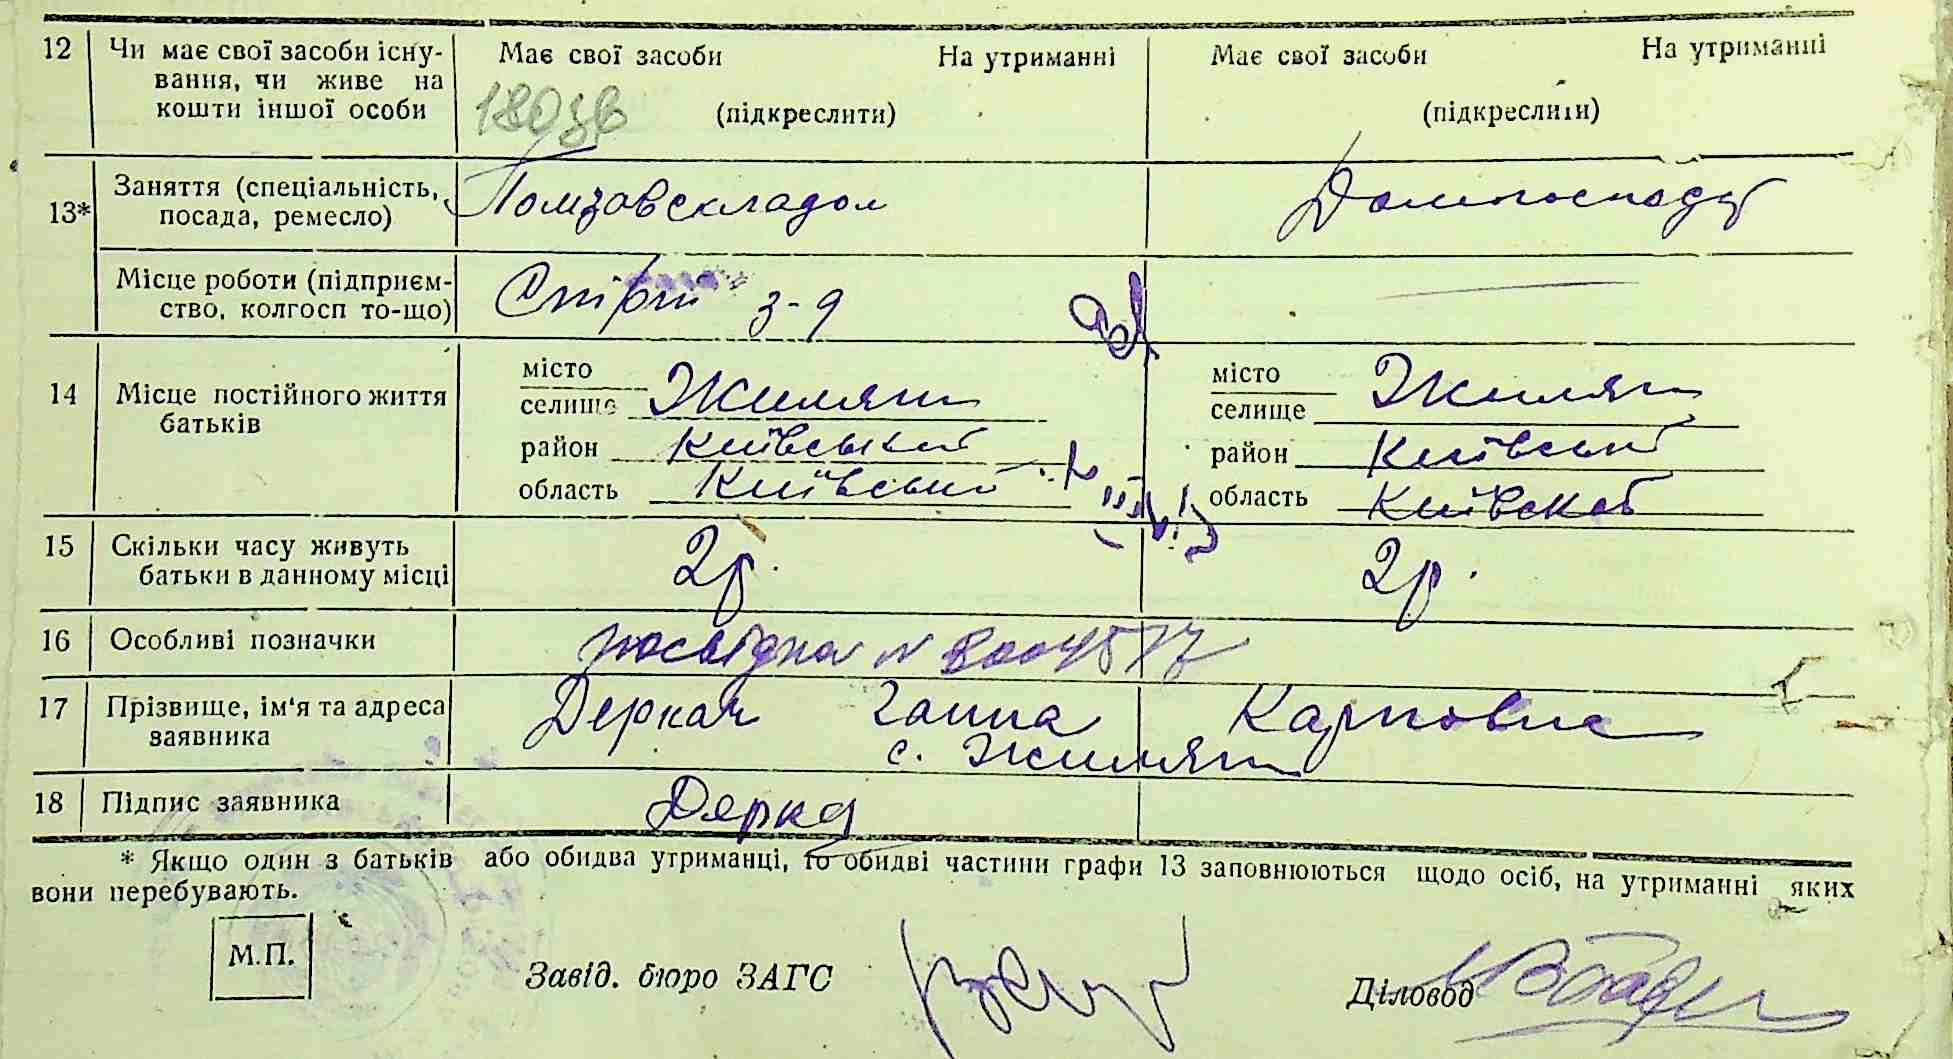 12 Чи має свої засоби існу- Має свої засоби На утриманні Має свої засоби На утриманні
вання, чи живе на
кошти іншої особи (підкреслити) (підкреслити)
13* Заняття (спеціальність, Помзавскладом Домогосподар
посада, ремесло)
Місце роботи (підприєм- Спирт з-д
ство, колгосп то-що)
14 Місце постійного життя місто Жиляни місто Жиляни
батьків селище селище
район Київський район Київськ
область Київський область Київскоб
15 Скільки часу живуть 2р. 2р.
батьки в данному місці
16 Особливі позначки посвідка №
17 Прізвище, ім'я та адреса Деркач Ганна Карповна
заявника с. Жиляни
18 Підпис заявника Дерка
* Якщо один з батьків або обидва утриманці, то обидві частини графи 13 заповнюються щодо осіб, на утриманні яких
вони перебувають.
М.П.
Завід. бюро ЗАГС Діловод